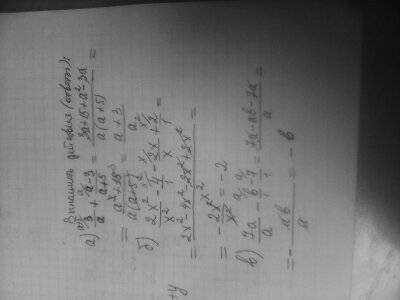 Выполнить действия (ответы):
а) 3/a + (a-3)/(a+5) = (3a+15+a²-3a)/(a(a+5)) =
= (a²+15)/(a(a+5))
б) 2x²/x² - 4 - 2x/x + 2/1 =
= (2x²-4x²-2x²+2x²)/x² =
= -2x²/x² = -2
в) 7a/a - b - 7 = (7a-ab-7a)/a =
= -ab/a = -b
+y